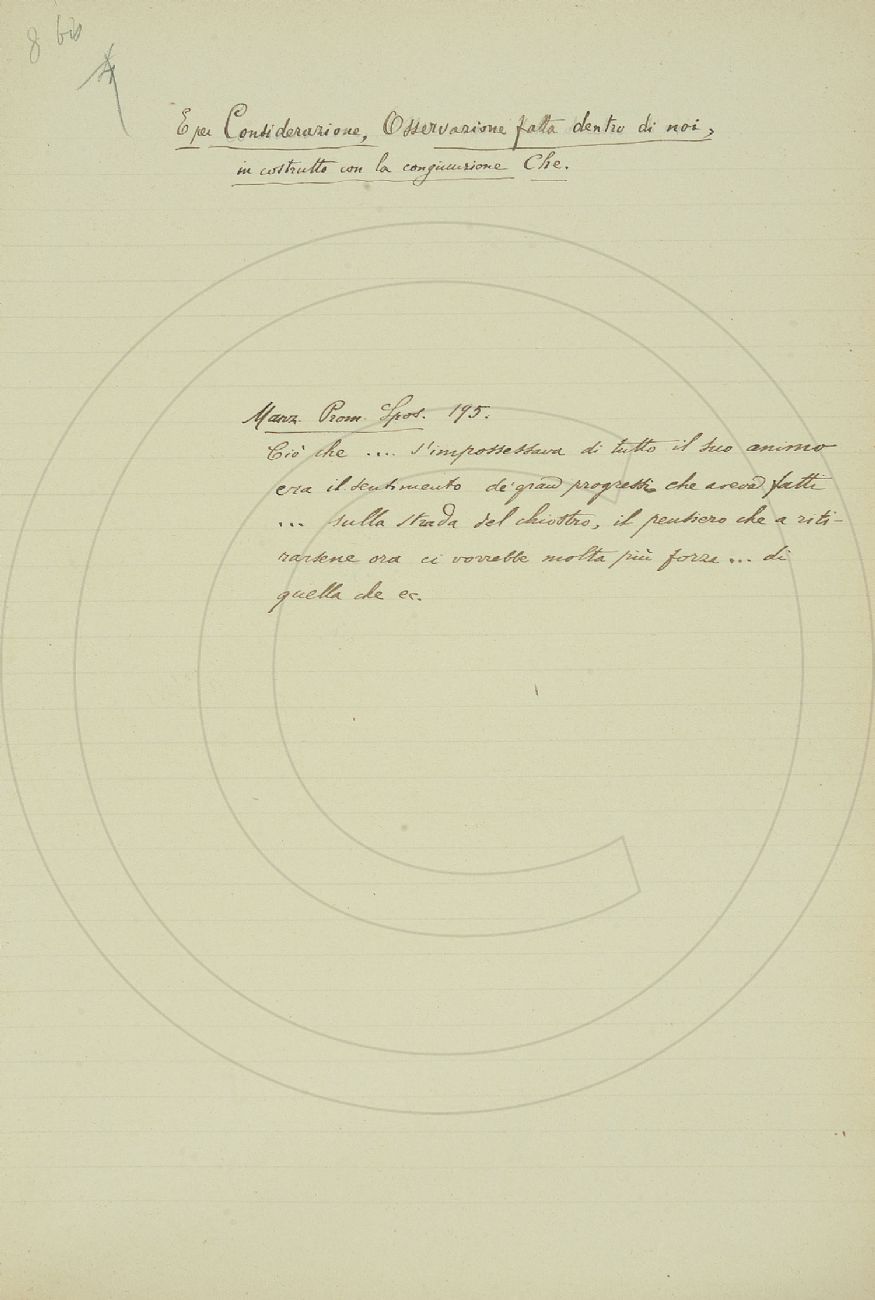 8 bis
E per Considerazione, Osservazione fatta dentro di noi,
in costrutto con la congiunzione Che.
Manz. Prom. Spos. 195.
Ciò che .... s'impossessava di tutto il suo animo
era il sentimento de' gran progressi che aveva fatti
... sulla strada del chiostro, il pensiero che a riti-
rarsene ora ci vorrebbe molta più forza ... di
quella che ec.